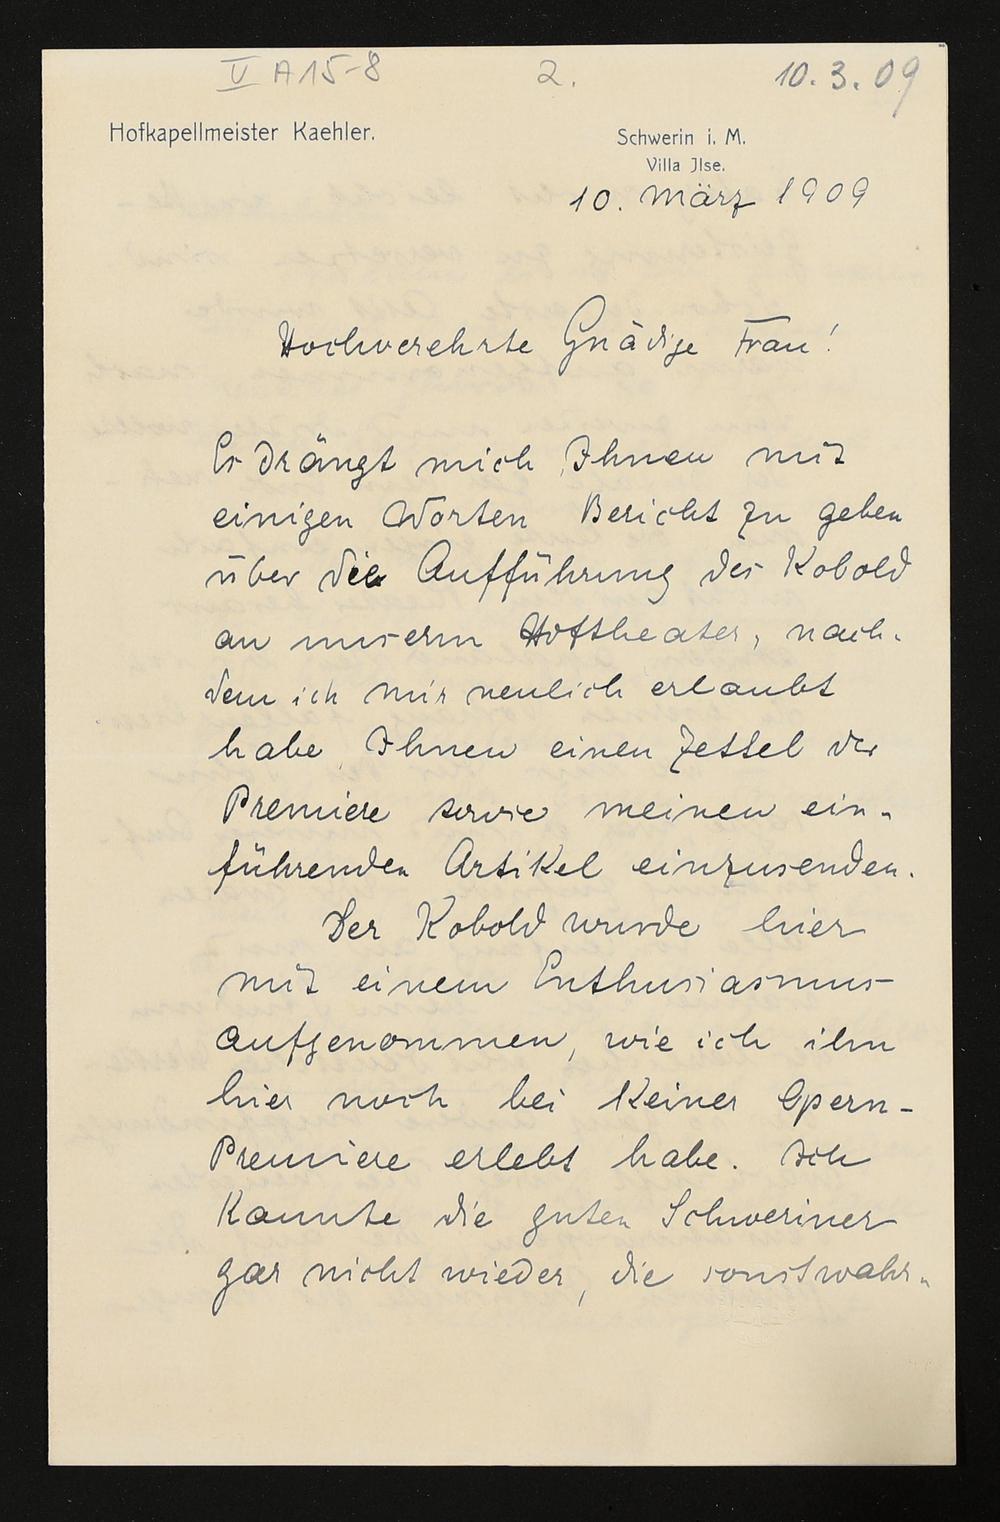 V A 15-8 2. 10. 3. 09
Hofkapellmeister Kaehler.
Schwerin i. M.
Villa Jlse.
10. März 1909
Hochverehrte Gnädige Frau!
Es drängt mich, Ihnen mit
einigen Worten Bericht zu geben
über die Aufführung des Kobold
an unserm Hoftheater, nach-
dem ich mir neulich erlaubt
habe, Ihnen einen Zettel der
Premiere sowie meinen ein-
führenden Artikel einzusenden.
Der Kobold wurde hier
mit einem Enthusiasmus
aufgenommen, wie ich ihn
hier noch bei keiner Opern-
Premiere erlebt habe. Ich
kannte die guten Schweriner
gar nicht wieder, die sonst wahr-